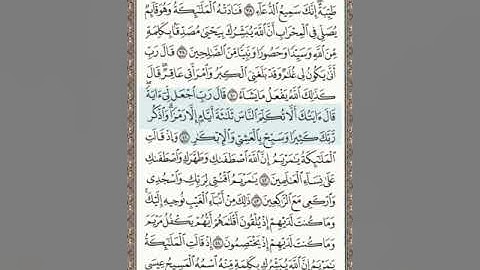 طَيِّبَةً إِنَّكَ سَمِيعُ الدُّعَاءِ ۝٣٨ فَنَادَتْهُ الْمَلَٰٓئِكَةُ وَهُوَ قَآئِمٌ
يُصَلِّي فِي الْمِحْرَابِ أَنَّ اللَّهَ يُبَشِّرُكَ بِيَحْيَىٰ مُصَدِّقًۢا بِكَلِمَةٍ
مِّنَ اللَّهِ وَسَيِّدًا وَحَصُورًا وَنَبِيًّا مِّنَ الصَّٰلِحِينَ ۝٣٩ قَالَ رَبِّ
أَنَّىٰ يَكُونُ لِي غُلَٰمٌ وَقَدْ بَلَغَنِيَ الْكِبَرُ وَامْرَأَتِي عَاقِرٌ ۖ قَالَ
كَذَٰلِكَ اللَّهُ يَفْعَلُ مَا يَشَآءُ ۝٤٠ قَالَ رَبِّ اجْعَل لِّيٓ ءَايَةً ۖ
قَالَ ءَايَتُكَ أَلَّا تُكَلِّمَ النَّاسَ ثَلَٰثَةَ أَيَّامٍ إِلَّا رَمْزًا ۗ وَاذْكُر
رَّبَّكَ كَثِيرًا وَسَبِّحْ بِالْعَشِيِّ وَالْإِبْكَٰرِ ۝٤١ وَإِذْ قَالَتِ
الْمَلَٰٓئِكَةُ يَٰمَرْيَمُ إِنَّ اللَّهَ اصْطَفَىٰكِ وَطَهَّرَكِ وَاصْطَفَىٰكِ
عَلَىٰ نِسَآءِ الْعَٰلَمِينَ ۝٤٢ يَٰمَرْيَمُ اقْنُتِي لِرَبِّكِ وَاسْجُدِي
وَارْكَعِي مَعَ الرَّٰكِعِينَ ۝٤٣ ذَٰلِكَ مِنْ أَنۢبَآءِ الْغَيْبِ نُوحِيهِ إِلَيْكَ ۚ
وَمَا كُنتَ لَدَيْهِمْ إِذْ يُلْقُونَ أَقْلَٰمَهُمْ أَيُّهُمْ يَكْفُلُ مَرْيَمَ
وَمَا كُنتَ لَدَيْهِمْ إِذْ يَخْتَصِمُونَ ۝٤٤ إِذْ قَالَتِ الْمَلَٰٓئِكَةُ
يَٰمَرْيَمُ إِنَّ اللَّهَ يُبَشِّرُكِ بِكَلِمَةٍ مِّنْهُ اسْمُهُ الْمَسِيحُ عِيسَى